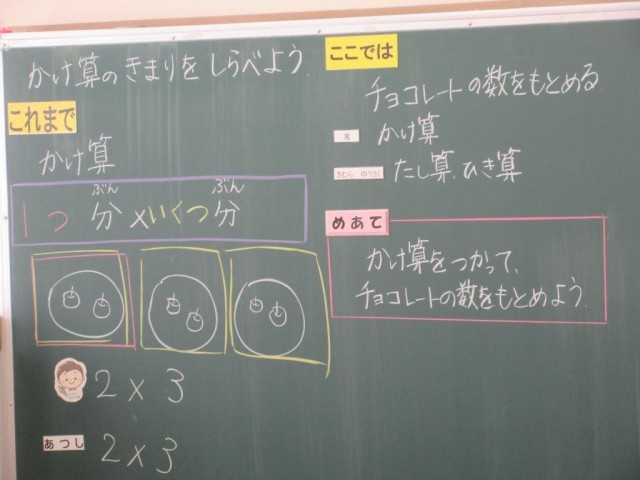 かけ算のきまりをしらべよう
これまで
かけ算
ぶん ぶん
1つ分×いくつ分
2×3
あつし
2×3
ここでは
チョコレートの数をもとめる
かけ算
きむら ゆうさく
たし算.ひき算
めあて
かけ算をつかって、
チョコレートの数をもとめよう.